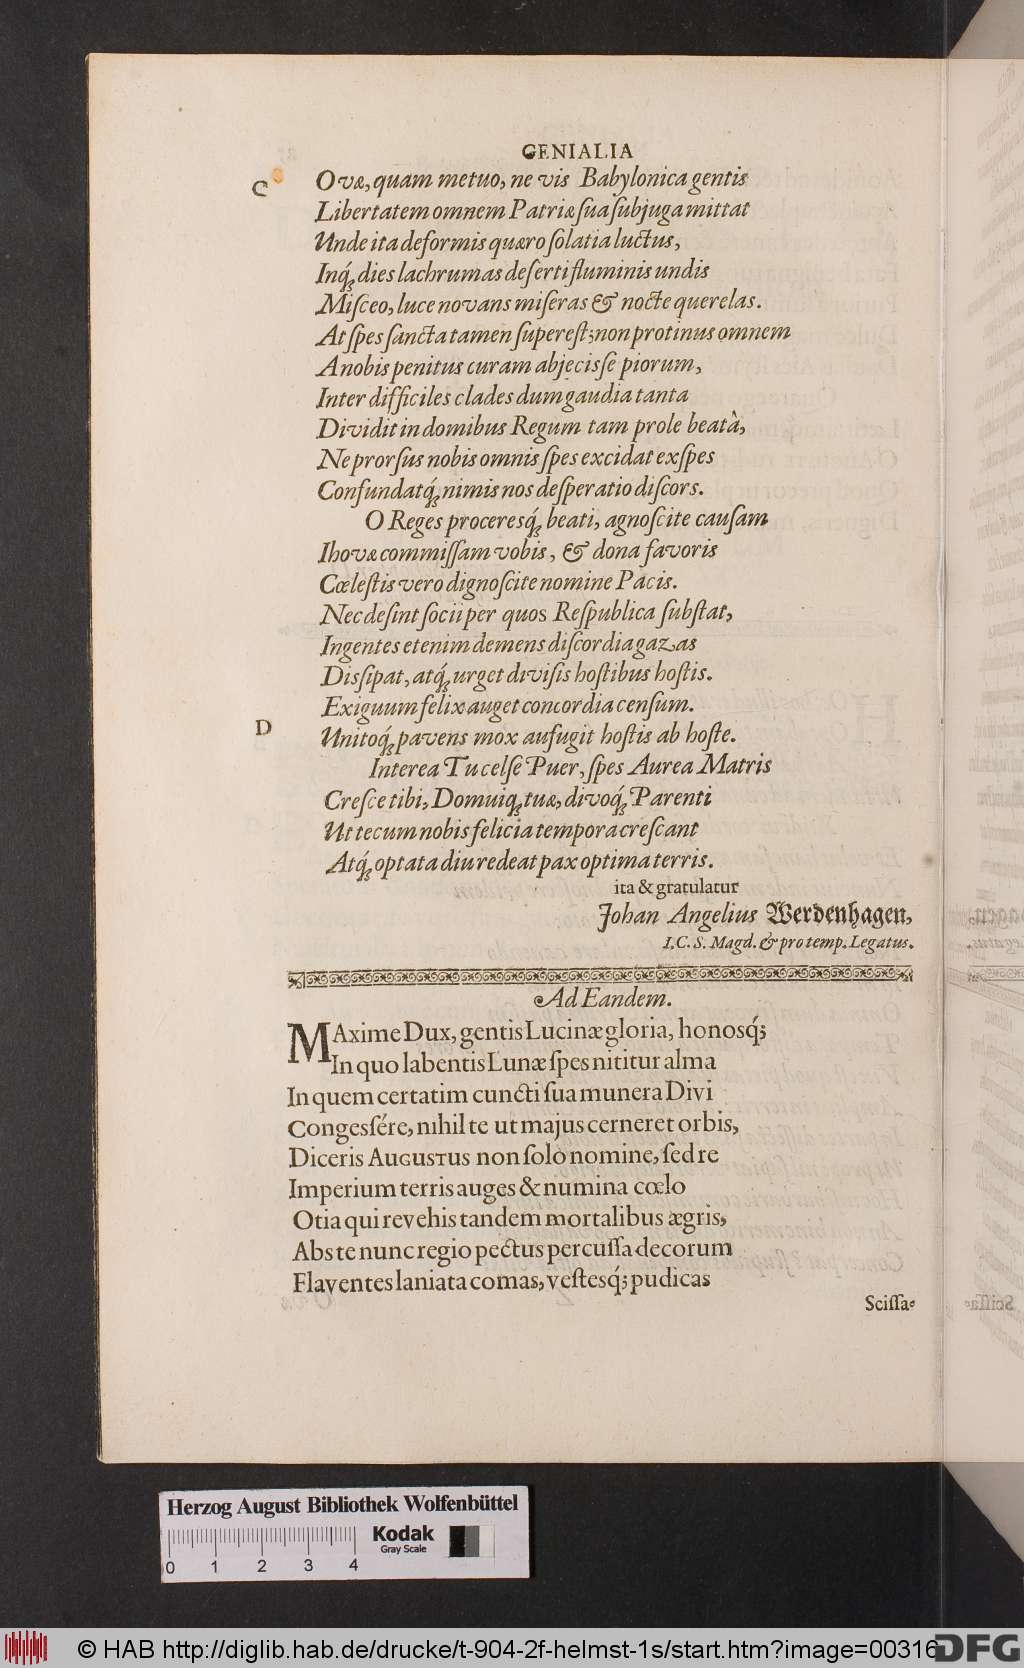 GENIALIA
C
O væ, quam metuo, ne vis Babylonica gentis
Libertatem omnem Patriæ sua sub juga mittat
Unde ita deformis quæro solatia luctus,
Inq́; dies lachrumas deserti fluminis undis
Misceo, luce novans miseras & nocte querelas.
At spes sancta tamen superest; non protinus omnem
A nobis penitus curam abjecisse piorum,
Inter difficiles clades dum gaudia tanta
Dividit in domibus Regum tam prole beatâ,
Ne prorsus nobis omnis spes excidat exspes
Confundatq́; nimis nos desperatio discors.
O Reges proceresq́; beati, agnoscite causam
Ihovæ commissam vobis, & dona favoris
Cœlestis vero dignoscite nomine Pacis.
Nec desint socii per quos Respublica substat,
Ingentes etenim demens discordia gazas
Dissipat, atq́; urget divisis hostibus hostis.
Exiguum felix auget concordia censum.
D
Unitoq́; pavens mox aufugit hostis ab hoste.
Interea Tu celse Puer, spes Aurea Matris
Cresce tibi, Domuiq; tuæ, divoq́; Parenti
Ut tecum nobis felicia tempora crescant
Atq́; optata diu redeat pax optima terris.
ita & gratulatur
Johan Angelius Werdenhagen,
I. C. S. Magd. & pro temp. Legatus.
Ad Eandem.
MAxime Dux, gentis Lucinæ gloria, honosq́;
In quo labentis Lunæ spes nititur alma
In quem certatim cuncti sua munera Divi
Congessére, nihil te ut majus cerneret orbis,
Diceris AUGUSTUS non solo nomine, sed re
Imperium terris auges & numina cœlo
Otia qui revehis tandem mortalibus ægris,
Abs te nunc regio pectus percussa decorum
Flaventes laniata comas, vestesq́; pudicas
Scissa-
Herzog August Bibliothek Wolfenbüttel
Kodak
Gray Scale
0 1 2 3 4
© HAB http://diglib.hab.de/drucke/t-904-2f-helmst-1s/start.htm?image=00316
DFG